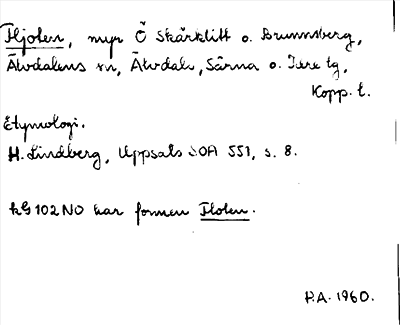 Fljoten, myr Ö Skärklitt o. Brunnsberg,
Älvdalens sn, Älvdals, Särna o. Idre tg,
Kopp. l.
Etymologi.
H. Lindberg, Uppsats SOA 551, s. 8.
kG 102 NO har formen Floten.
P.A. 1960.